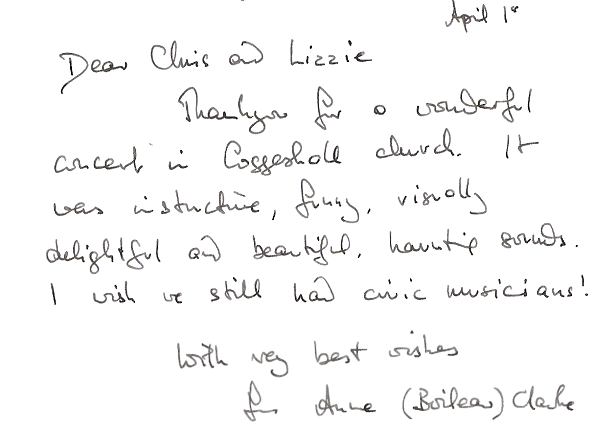 April 1st
Dear Chris and Lizzie
Thankyou for a wonderful
concert in Coggeshall church. It
was instructive, funny, visually
delightful and beautiful, haunting sounds.
I wish we still had civic musicians!
With very best wishes
from Anne (Boileau) Clarke